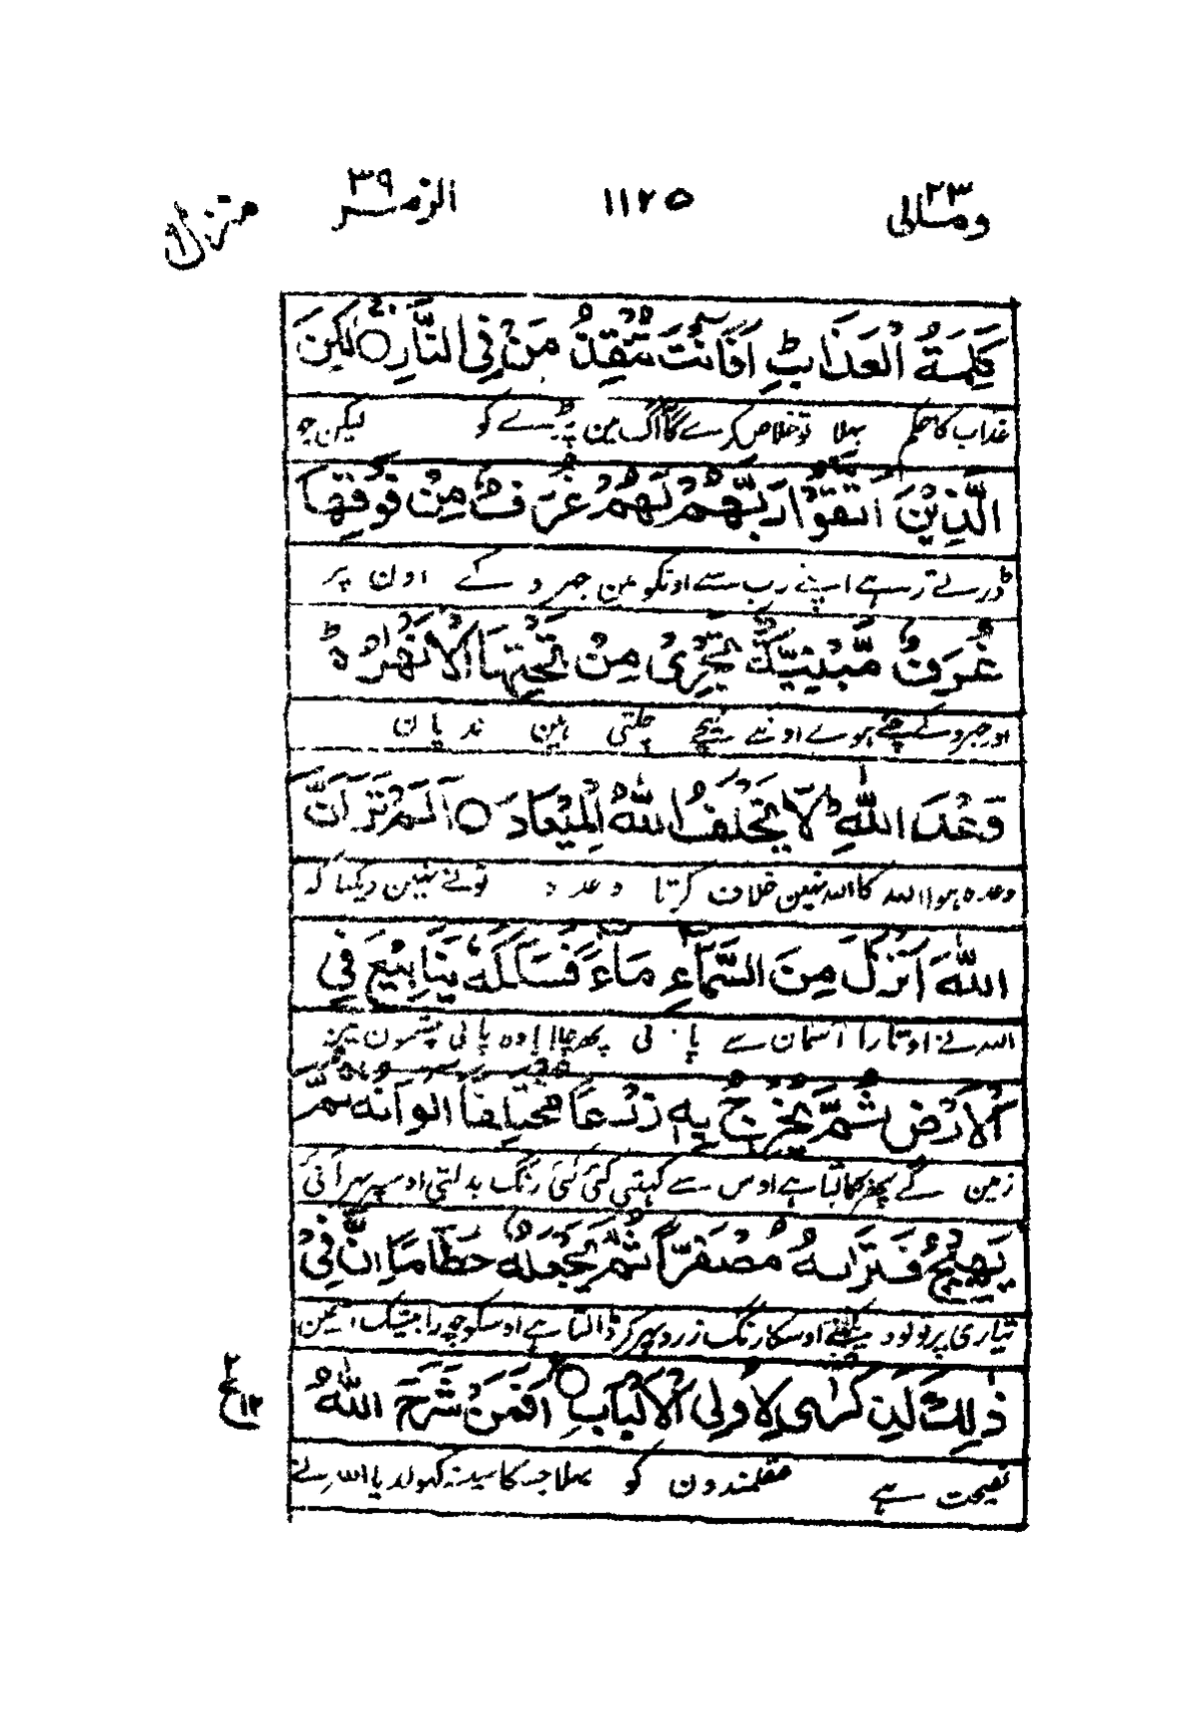 ومالی ٢٣ ١١٢٥ الزمر ٣٩ منزل
كَلِمَةُ الْعَذَابِ ؕ اَفَاَنْتَ تُنْقِذُ مَنْ فِی النَّارِ ○ لٰكِنَ
عذاب کا حکم بہلا تو خلاص کرے گا آگ مین پڑے کو لیکن جو
الَّذِیْنَ اتَّقَوْا رَبَّهُمْ لَهُمْ غُرَفٌ مِنْ فَوْقِهَا
ڈرتے رہے اپنے رب سے اونکو ہین جہرو کے اون پر
غُرَفٌ مَّبْنِیَّةٌ تَجْرِیْ مِنْ تَحْتِهَا الْاَنْهٰرُ ؕ
اور جہروکے چنے ہوے اونکے نیچے چلتی ہین ندیان
وَعْدَ اللّٰهِ ؕ لَا یُخْلِفُ اللّٰهُ الْمِیْعَادَ ○ اَلَمْ تَرَ اَنَّ
وعدہ ہوا اللہ کا اللہ نہین خلاف کرتا وعدہ تونے نہین دیکہا کہ
اللّٰهَ اَنْزَلَ مِنَ السَّمَآءِ مَآءً فَسَلَكَهٗ یَنَابِیْعَ فِی
اللہ نے اوتارا آسمان سے پانی پھر چلایا وہ پانی چشمون مین
الْاَرْضِ ثُمَّ یُخْرِجُ بِهٖ زَرْعًا مُّخْتَلِفًا اَلْوَانُهٗ ثُمَّ
زمین کے پھر نکالتا ہے اوس سے کہیتی کئی کئی رنگ بدلتی اوسپر پہر آئی
یَهِیْجُ فَتَرٰىهُ مُصْفَرًّا ثُمَّ یَجْعَلُهٗ حُطَامًا اِنَّ فِیْ
تیاری پر تو تو دیکہے اوسکا رنگ زرد پہر کر ڈالتا ہے اوسکو چورا بیشک اسمین
ذٰلِكَ لَذِكْرٰى لِاُولِی الْاَلْبَابِ ○ اَفَمَنْ شَرَحَ اللّٰهُ
نصیحت ہے عقلمندون کو بہلا جسکا سینہ کہولدیا اللہ نے
٢
ع
١٢